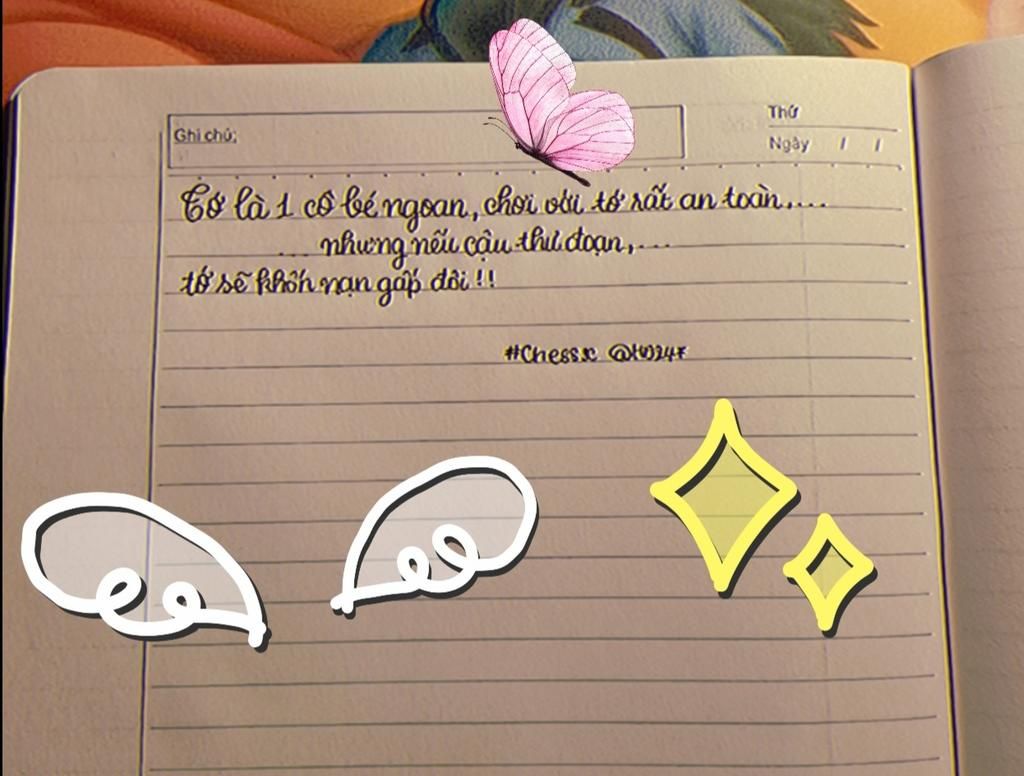 Ghi chú:
Thứ
Ngày / /
Tớ là 1 cô bé ngoan, chơi với tớ rất an toàn,...
... nhưng nếu cậu thủ đoạn,...
tớ sẽ khốn nạn gấp đôi!!
#Chess.x